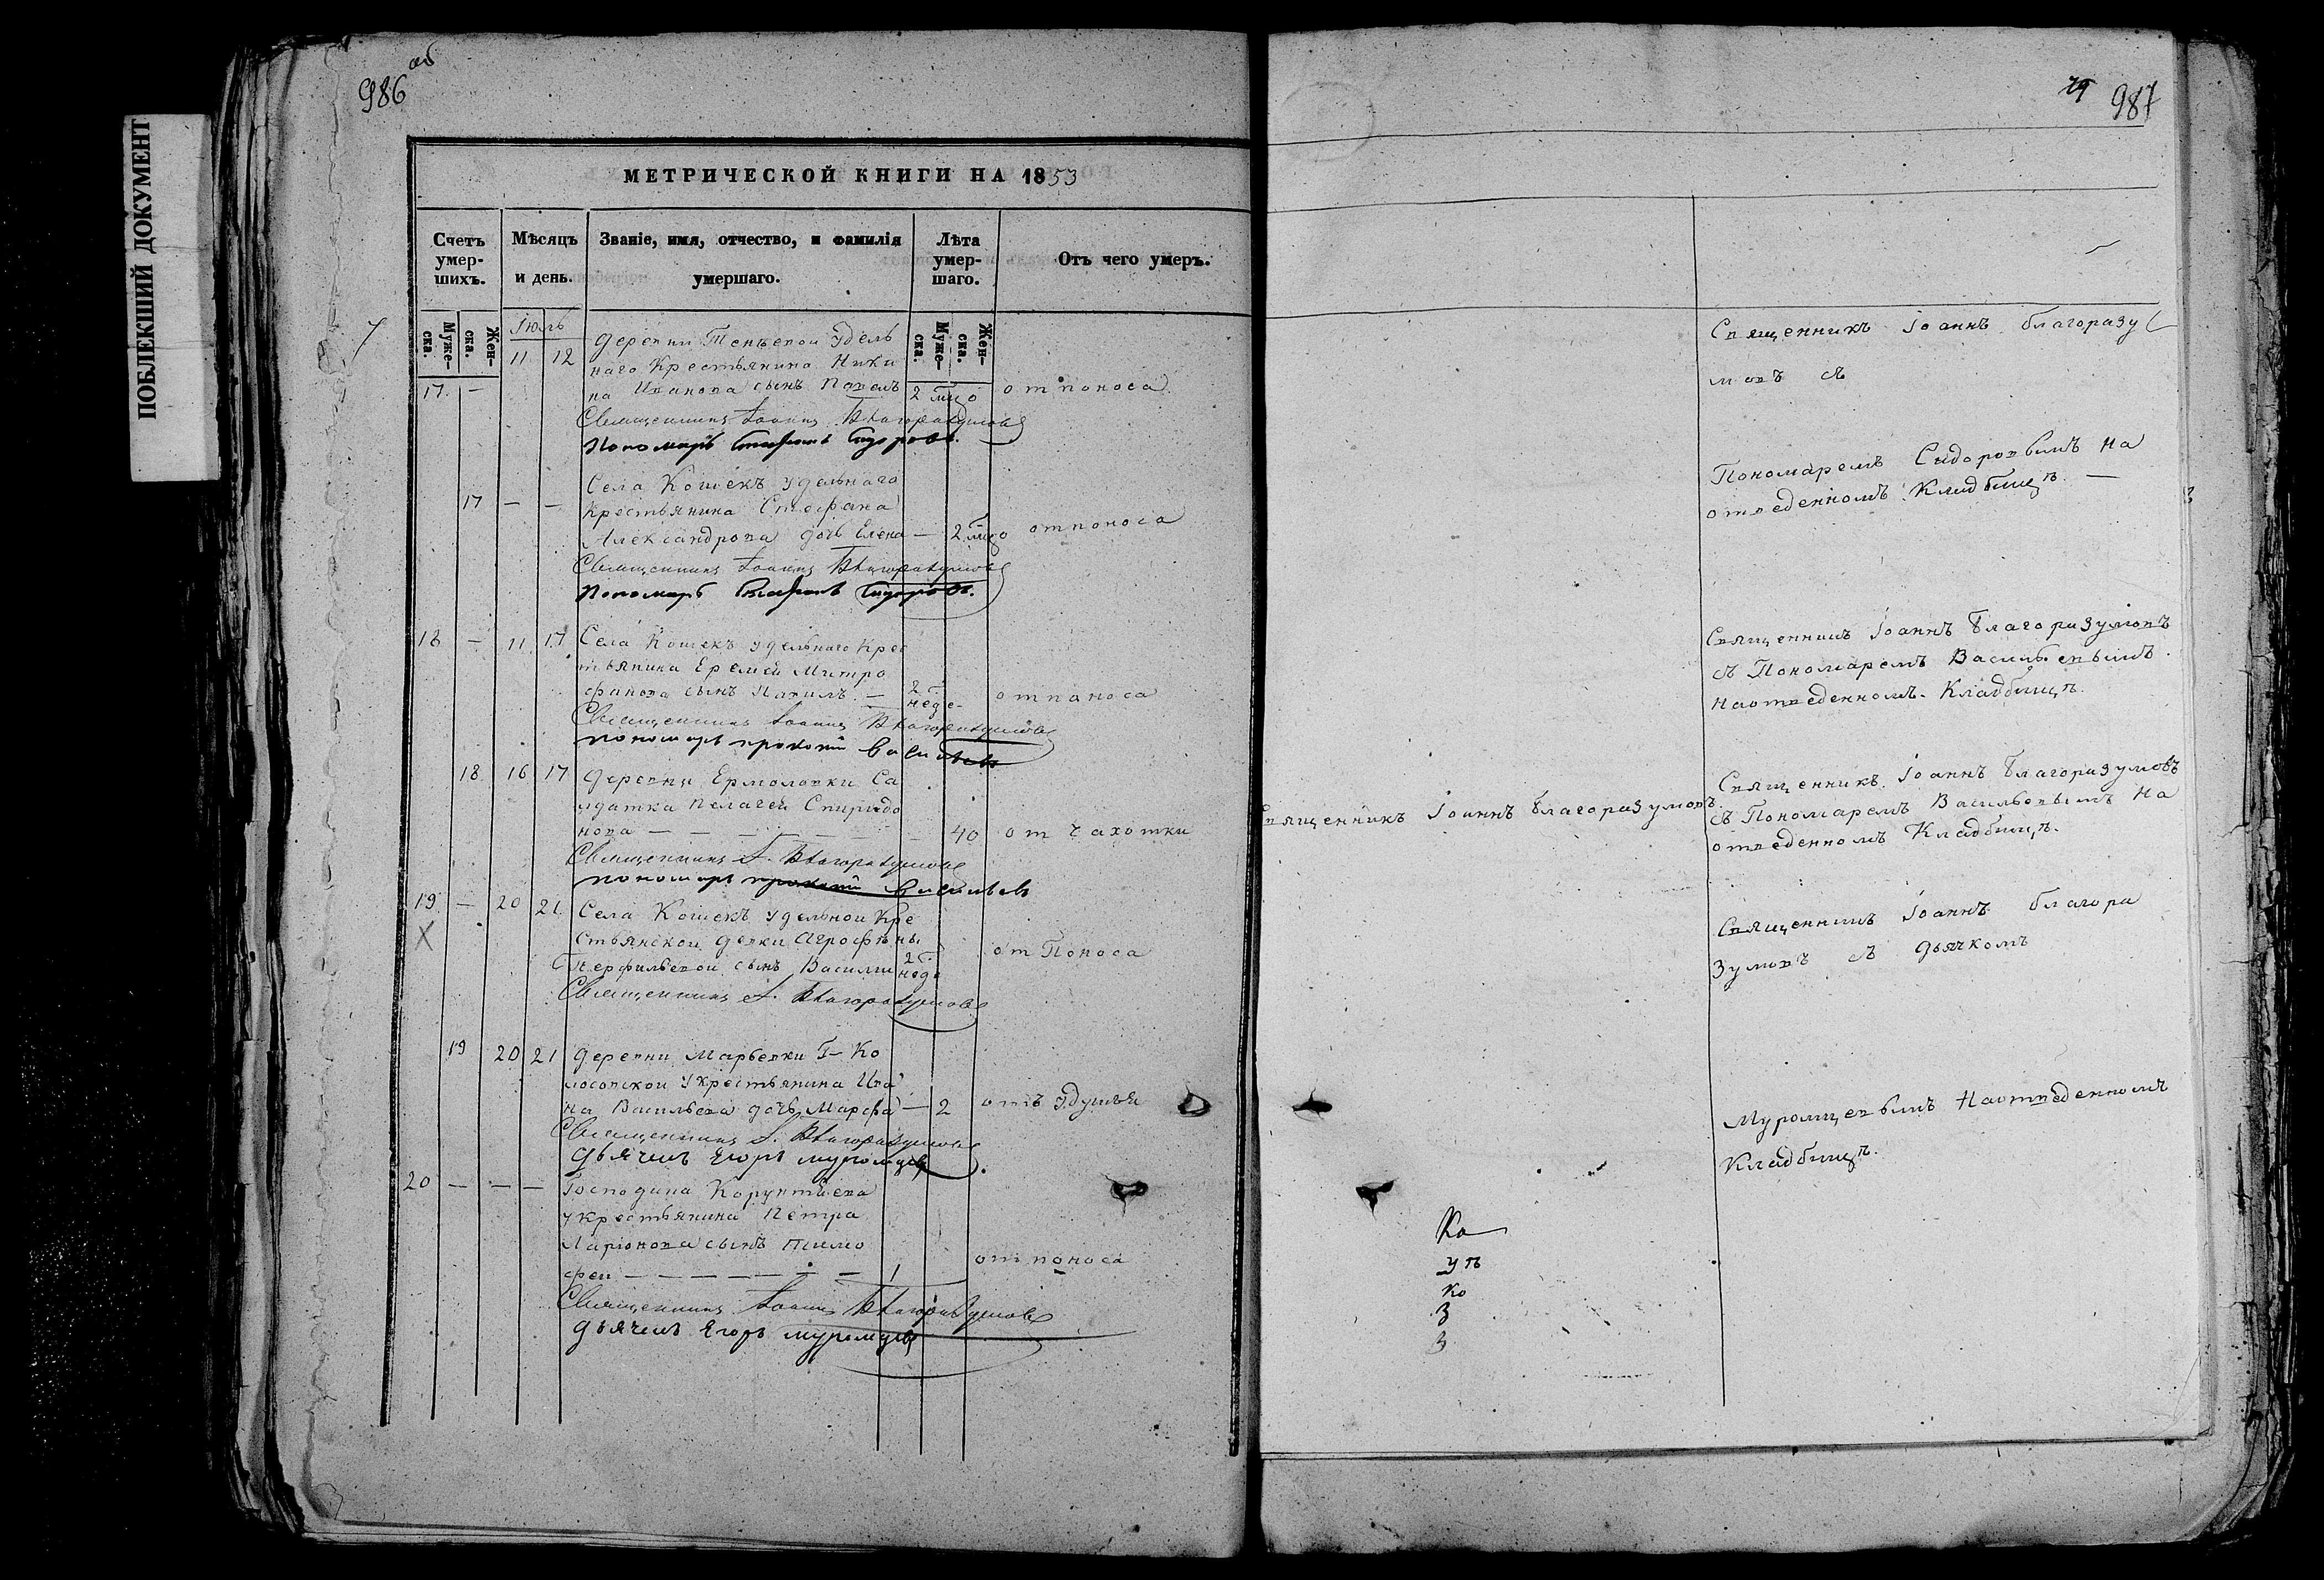 986 об
ПОБЛЕКШИЙ ДОКУМЕНТ
МЕТРИЧЕСКОЙ КНИГИ НА 1853
Счетъ умер-шихъ.
Мѣсяцъ и день.
Званіе, имя, отчество, и фамилія умершаго.
Лѣта умер-шаго.
Отъ чего умеръ.
Муже-ска.
Жен-ска.
Іюль
Муже-ска.
Жен-ска.
11 12 деревни Тенъевой Удель
наго Крестьянина Ники
17 — на Иванова сынъ Павелъ 2 от поноса
Священникъ Іоаннъ Благоразумовъ
Пономарь Стефанъ Сидоровъ.
Села Кошекъ удельнаго
17 — — Крестьянина Стефана
Александрова дочь Елена — 2 от поноса
Священникъ Іоаннъ Благоразумовъ
Пономарь Стефанъ Сидоровъ.
18 — 11 17 Села Кошекъ удельнаго Крес
тьянина Еремей Митро
фанова сынъ — 2 неде- от поноса
Священникъ Іоаннъ Благоразумовъ
пономарь прокопий Васильев
18 16 17 деревни Ермоловки Са
лдатка Пелагея Спиридо
нова — — — — — — — 40 от чахотки
Священникъ І. Благоразумовъ
пономарь прокопий Васильев
19 — 20 21 Села Кошекъ удельной Кре
X стьянской девки Агрофены
Перфильевой сынъ Василий 2 неде от Поноса
Священникъ І. Благоразумовъ
19 20 21 деревни Марьевки Г- Ко
лосовской у крестьянина Ива
на Васильева дочь Марфа — 2 отъ удушья
Священникъ І. Благоразумовъ
Дьячекъ Егоръ Муромцевъ
20 — — — Господина
у крестьянина Петра
Ларіонова сынъ Тимо
фей — — — — — — — 1 от поноса
Священникъ Іоаннъ Благоразумовъ
Дьячекъ Егоръ Муромцевъ
987
Священникъ Іоаннъ благоразу
мовъ съ
Пономаремъ Сидоровымъ на
отведенномъ Кладбищѣ. —
Священникъ Іоаннъ Благоразумовъ
съ Пономаремъ Васильевымъ
на отведенномъ Кладбищѣ.
Священникъ Іоаннъ Благоразумовъ
Священникъ Іоаннъ Благоразумовъ
съ Пономаремъ Васильевымъ На
отведенномъ Кладбищѣ.
Священникъ Іоаннъ благора
зумовъ съ дьячкомъ
Муромцевымъ На отведенномъ
Кладбищѣ.
Ко
уѣ
ко
3
3